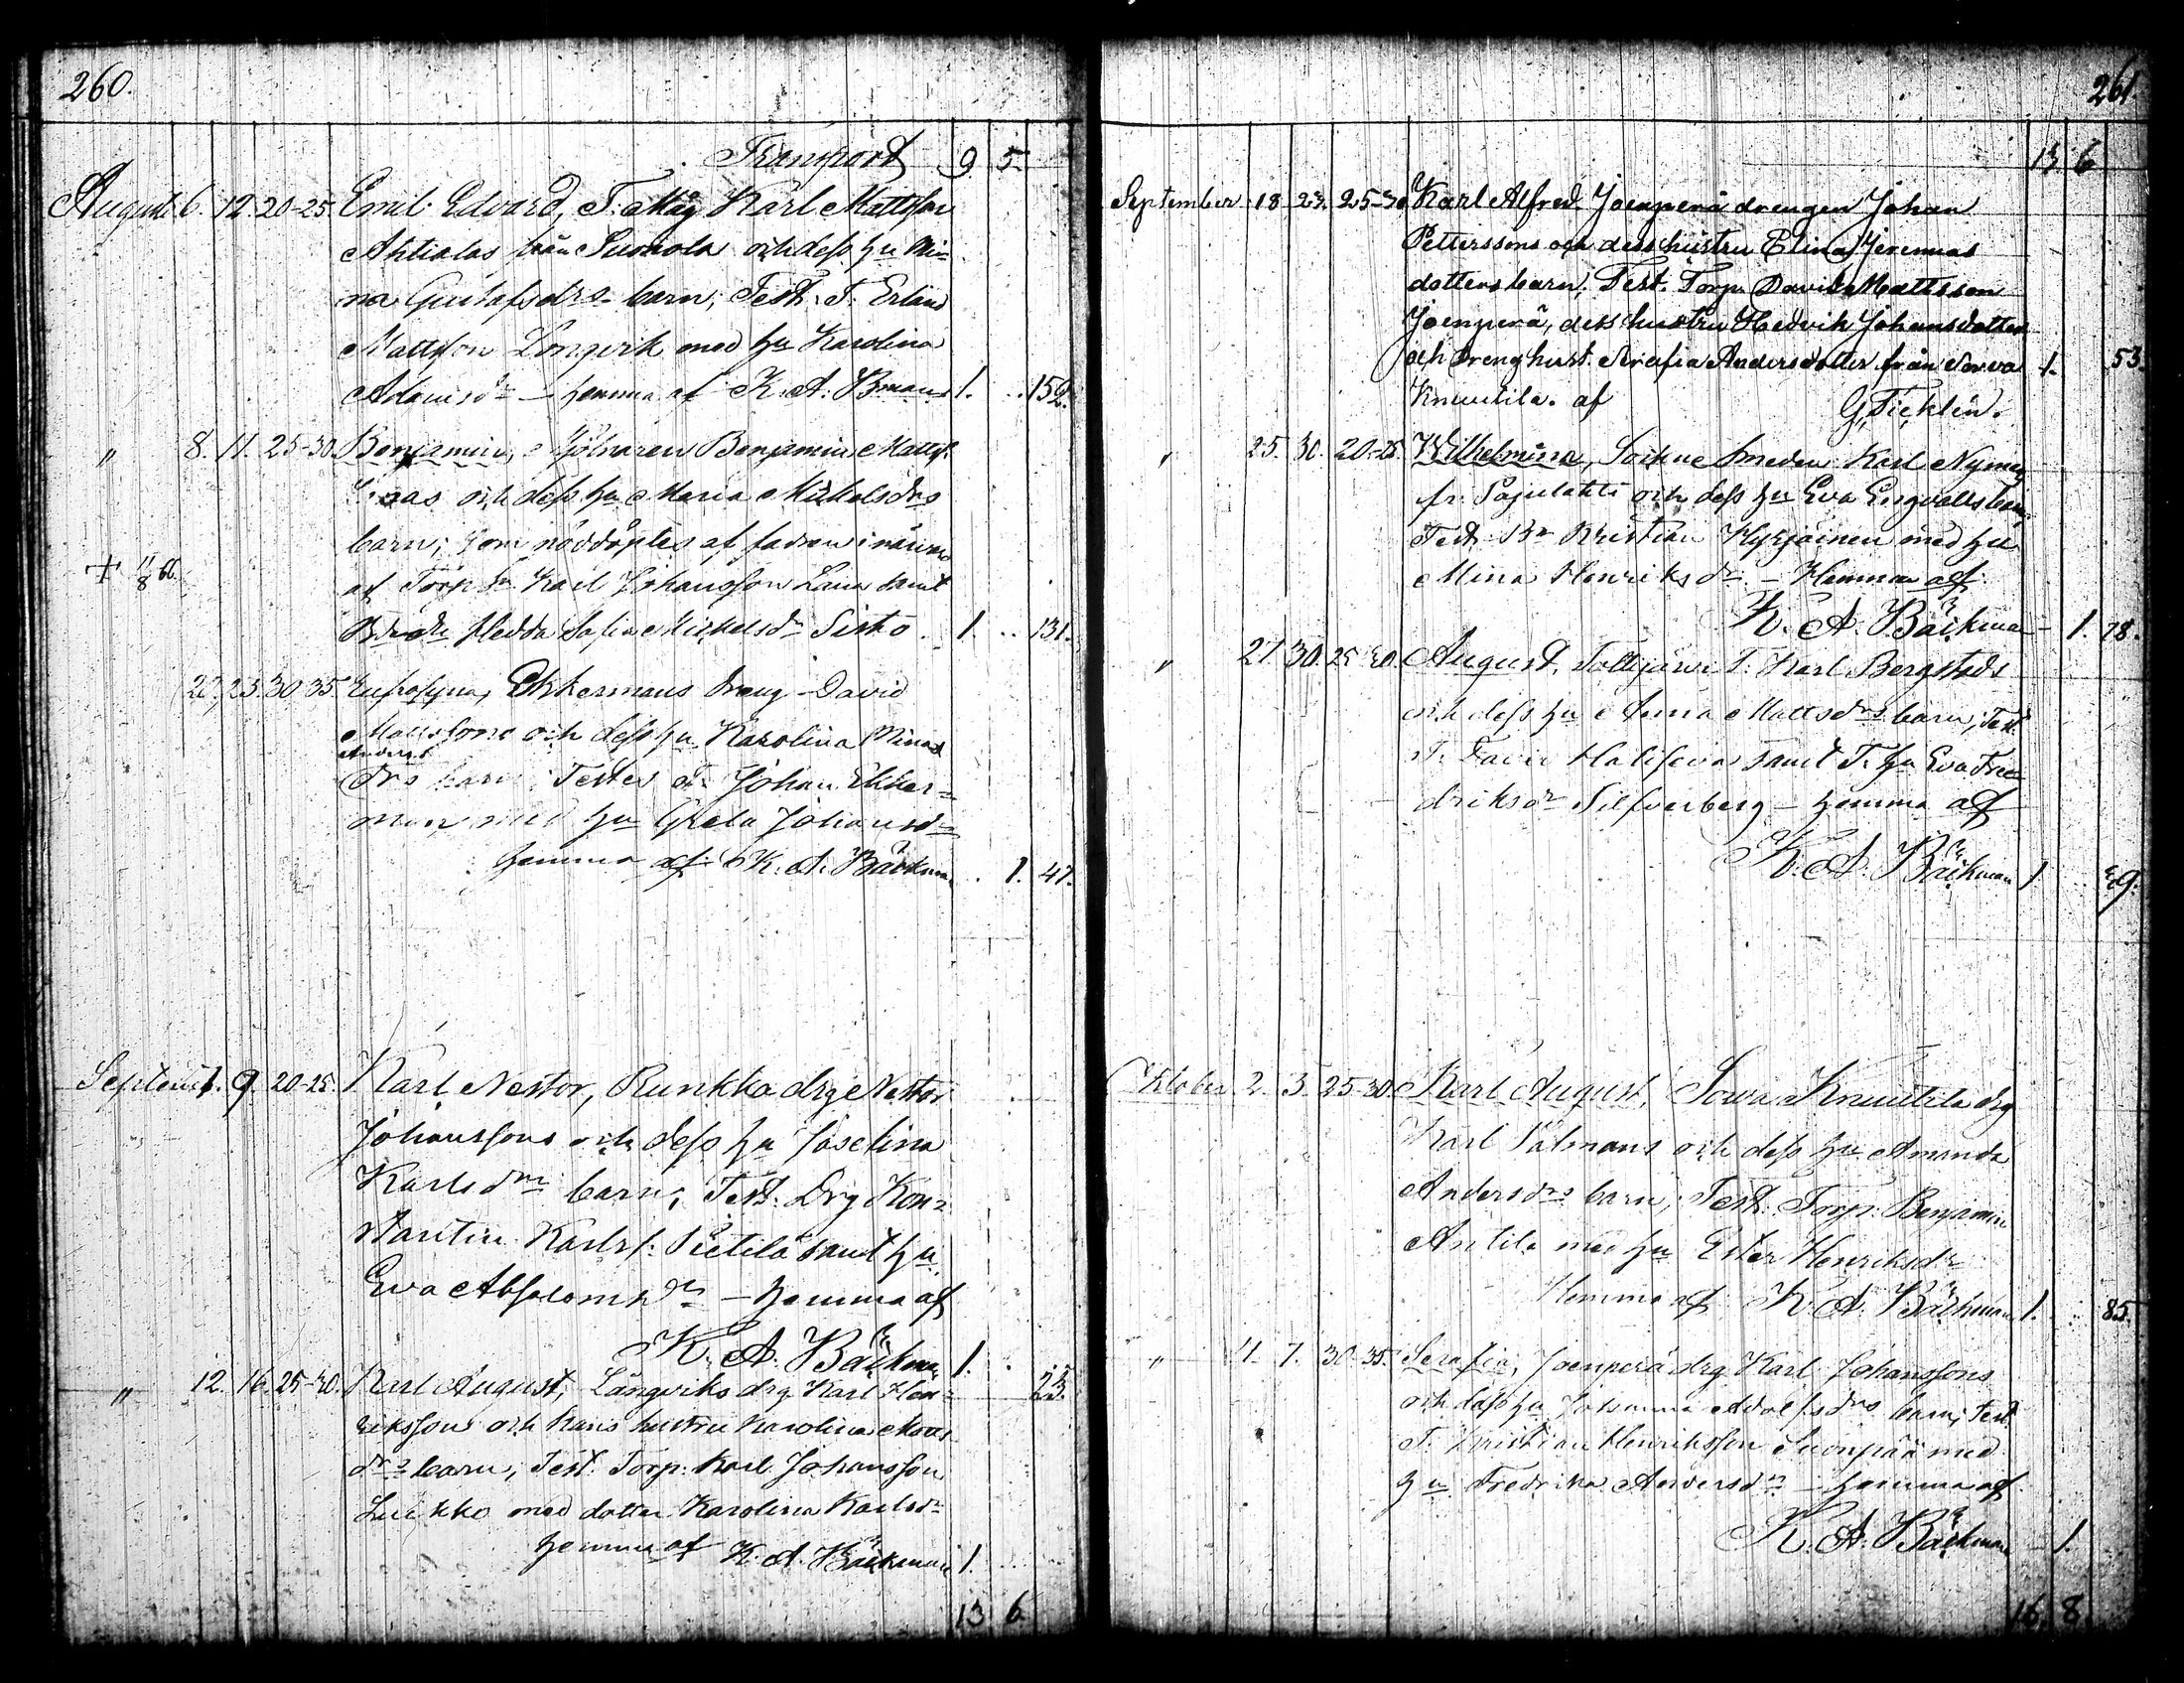 260.
Transport 9 5
August 6. 12. 20-25. Emil Edvard, T. Måg Karl Mattsson
Ahtialas från Suonola och dess hu Mi-
na Gustafsdrs barn; Test. T. Erland
Mattsson Longvik med hu Karolina
Adamsdr — hemma af K. A. Bman 1. 152.
" 8. 11. 25-30. Benjamin, Mjölnaren Benjamin Mattss.
och dess hu Maria Mickelsdrs
barn; som nöddöptes af fadren i närvaro
+ 11/8 66. af Torp. Karl Johansson Laura samt
Hedda Sofia Mickelsdr Sisto 1. 131.
22. 23. 30 35 Eufrosyna, Ekkermans dreng David
Mattssons och dess hu Karolina Mina
Anders
drs barn; Testes T. Johan Ekker-
man med hu Greta Johansdr
hemma af K. A. Bäckman 1. 47.
Septemb. 1. 9. 20-25. Karl Nestor, Runkka drg Nestor
Johanssons och dess hu Joselina
Karlsdrs barn; Test. Drg Kon-
stantin Karlss. Pietilä samt hu
Eva Absalomsdr — hemma af
K. A. Bäckman 1. 23.
" 12. 16. 25-30. Karl August, Långviks drg Karl Hen-
rikssons och hans hustru Karolina Matts
drs barn; Test. Torp. Karl Johansson
Luikko med dotter Karolina Karlsdr
hemma af K. A. Bäckman 1.
13 6.
261.
13 6
September 18 23. 25-30 Karl Alfred Joenperä drengen Johan
Petterssons och dess hustru Elina Jeremias
dotters barn; Test. Torp. David Mattsson
Joenperä, dess hustru Hedvik Johansdotter
och dreng hust. Serafia Andersdotter från Sorva 1. 53.
Knuutila. af G. Ticklén.
" 25. 30. 20-25. Wilhelmina, Sockne Smeden Karl Nyman
fr. Pajulahti och dess hu Eva Engvalls barn;
Test. Kristian Kyrjäinen med hu
Mina Henriksdr — Hemma af
K. A. Bäckman — 1. 78.
" 27 30. 25 30. August, T. Karl Bergsteds
och dess hu Anna Mattsdrs barn; Test.
T. David samt T. hu Eva Fre-
driksdr Silfverberg — hemma af
K. A. Bäckman 1 29.
Oktober 2. 3. 25-30. Karl August, Sorva Knuutila drg
Karl Pälmans och dess hu Amanda
Andersdrs barn; Test. Torp. Benjamin
Antila med hu Ester Henriksdr
Hemma af K. A. Bäckman 1. 85.
" 4. 7. 30-35. Serafia, Joenperä drg Karl Johanssons
och dess hu Johanna Adolfsdrs barn; Test.
T. Kristian Henriksson Suonpää med
hu Fredrika Andersdr — hemma af
K. A. Bäckman — 1.
16. 8.